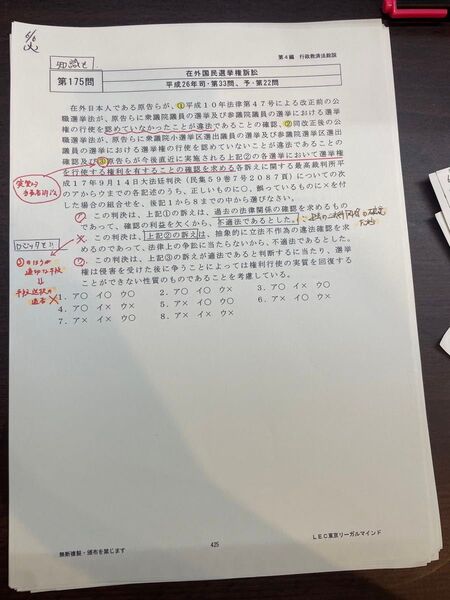 5/6
知識も
第4編 行政救済法総説
第175問
在外国民選挙権訴訟
平成26年司・第33問、予・第22問
在外日本人である原告らが、①平成10年法律第47号による改正前の公
職選挙法が、原告らに衆議院議員の選挙及び参議院議員の選挙における選挙
権の行使を認めていなかったことが違法であることの確認、②同改正後の公
職選挙法が、原告らに衆議院小選挙区選出議員の選挙及び参議院選挙区選出
議員の選挙における選挙権の行使を認めていないことが違法であることの
確認及び③原告らが今後直近に実施される上記②の各選挙において選挙権
を行使する権利を有することの確認を求める各訴えに関する最高裁判所平
成17年9月14日大法廷判決(民集59巻7号2087頁)についての次
のアからウまでの各記述のうち、正しいものに○、誤っているものに×を付
した場合の組合せを、後記1から8までの中から選びなさい。
ア この判決は、上記①の訴えは、過去の法律関係の確認を求めるもの
であって、確認の利益を欠くから、不適法であるとした。
イ この判決は、上記②の訴えは、抽象的に立法不作為の違憲確認を求
めるものであって、法律上の争訟に当たらないから、不適法であるとした。
ウ この判決は、上記③の訴えが適法であると判断するに当たり、選挙
権は侵害を受けた後に争うことによっては権利行使の実質を回復する
ことができない性質のものであることを考慮している。
1.ア○ イ○ ウ○ 2.ア○ イ○ ウ× 3.ア○ イ× ウ○
4.ア○ イ× ウ× 5.ア× イ○ ウ○ 6.ア× イ○ ウ×
7.ア× イ× ウ○ 8.ア× イ× ウ×
実質的
当事者訴訟
③のほうが
適切な手段
⇓
425
無断複製・頒布を禁じます
LEC東京リーガルマインド